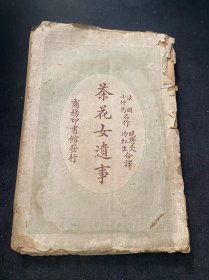 法國
小仲馬
名作
曉齋主人
冷紅生
合譯
茶花女遺事
商務印書館發行